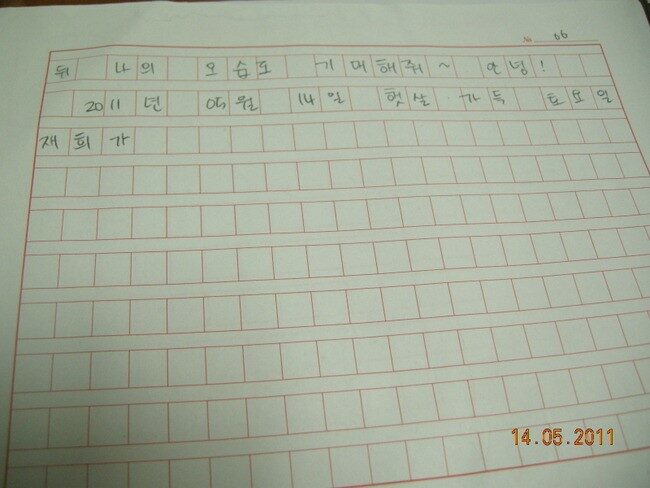 No. 66
뒤 나의 모습도 기대해줘~ 안녕!
2011년 05월 14일 햇살 가득 토요일
재희가
14.05.2011